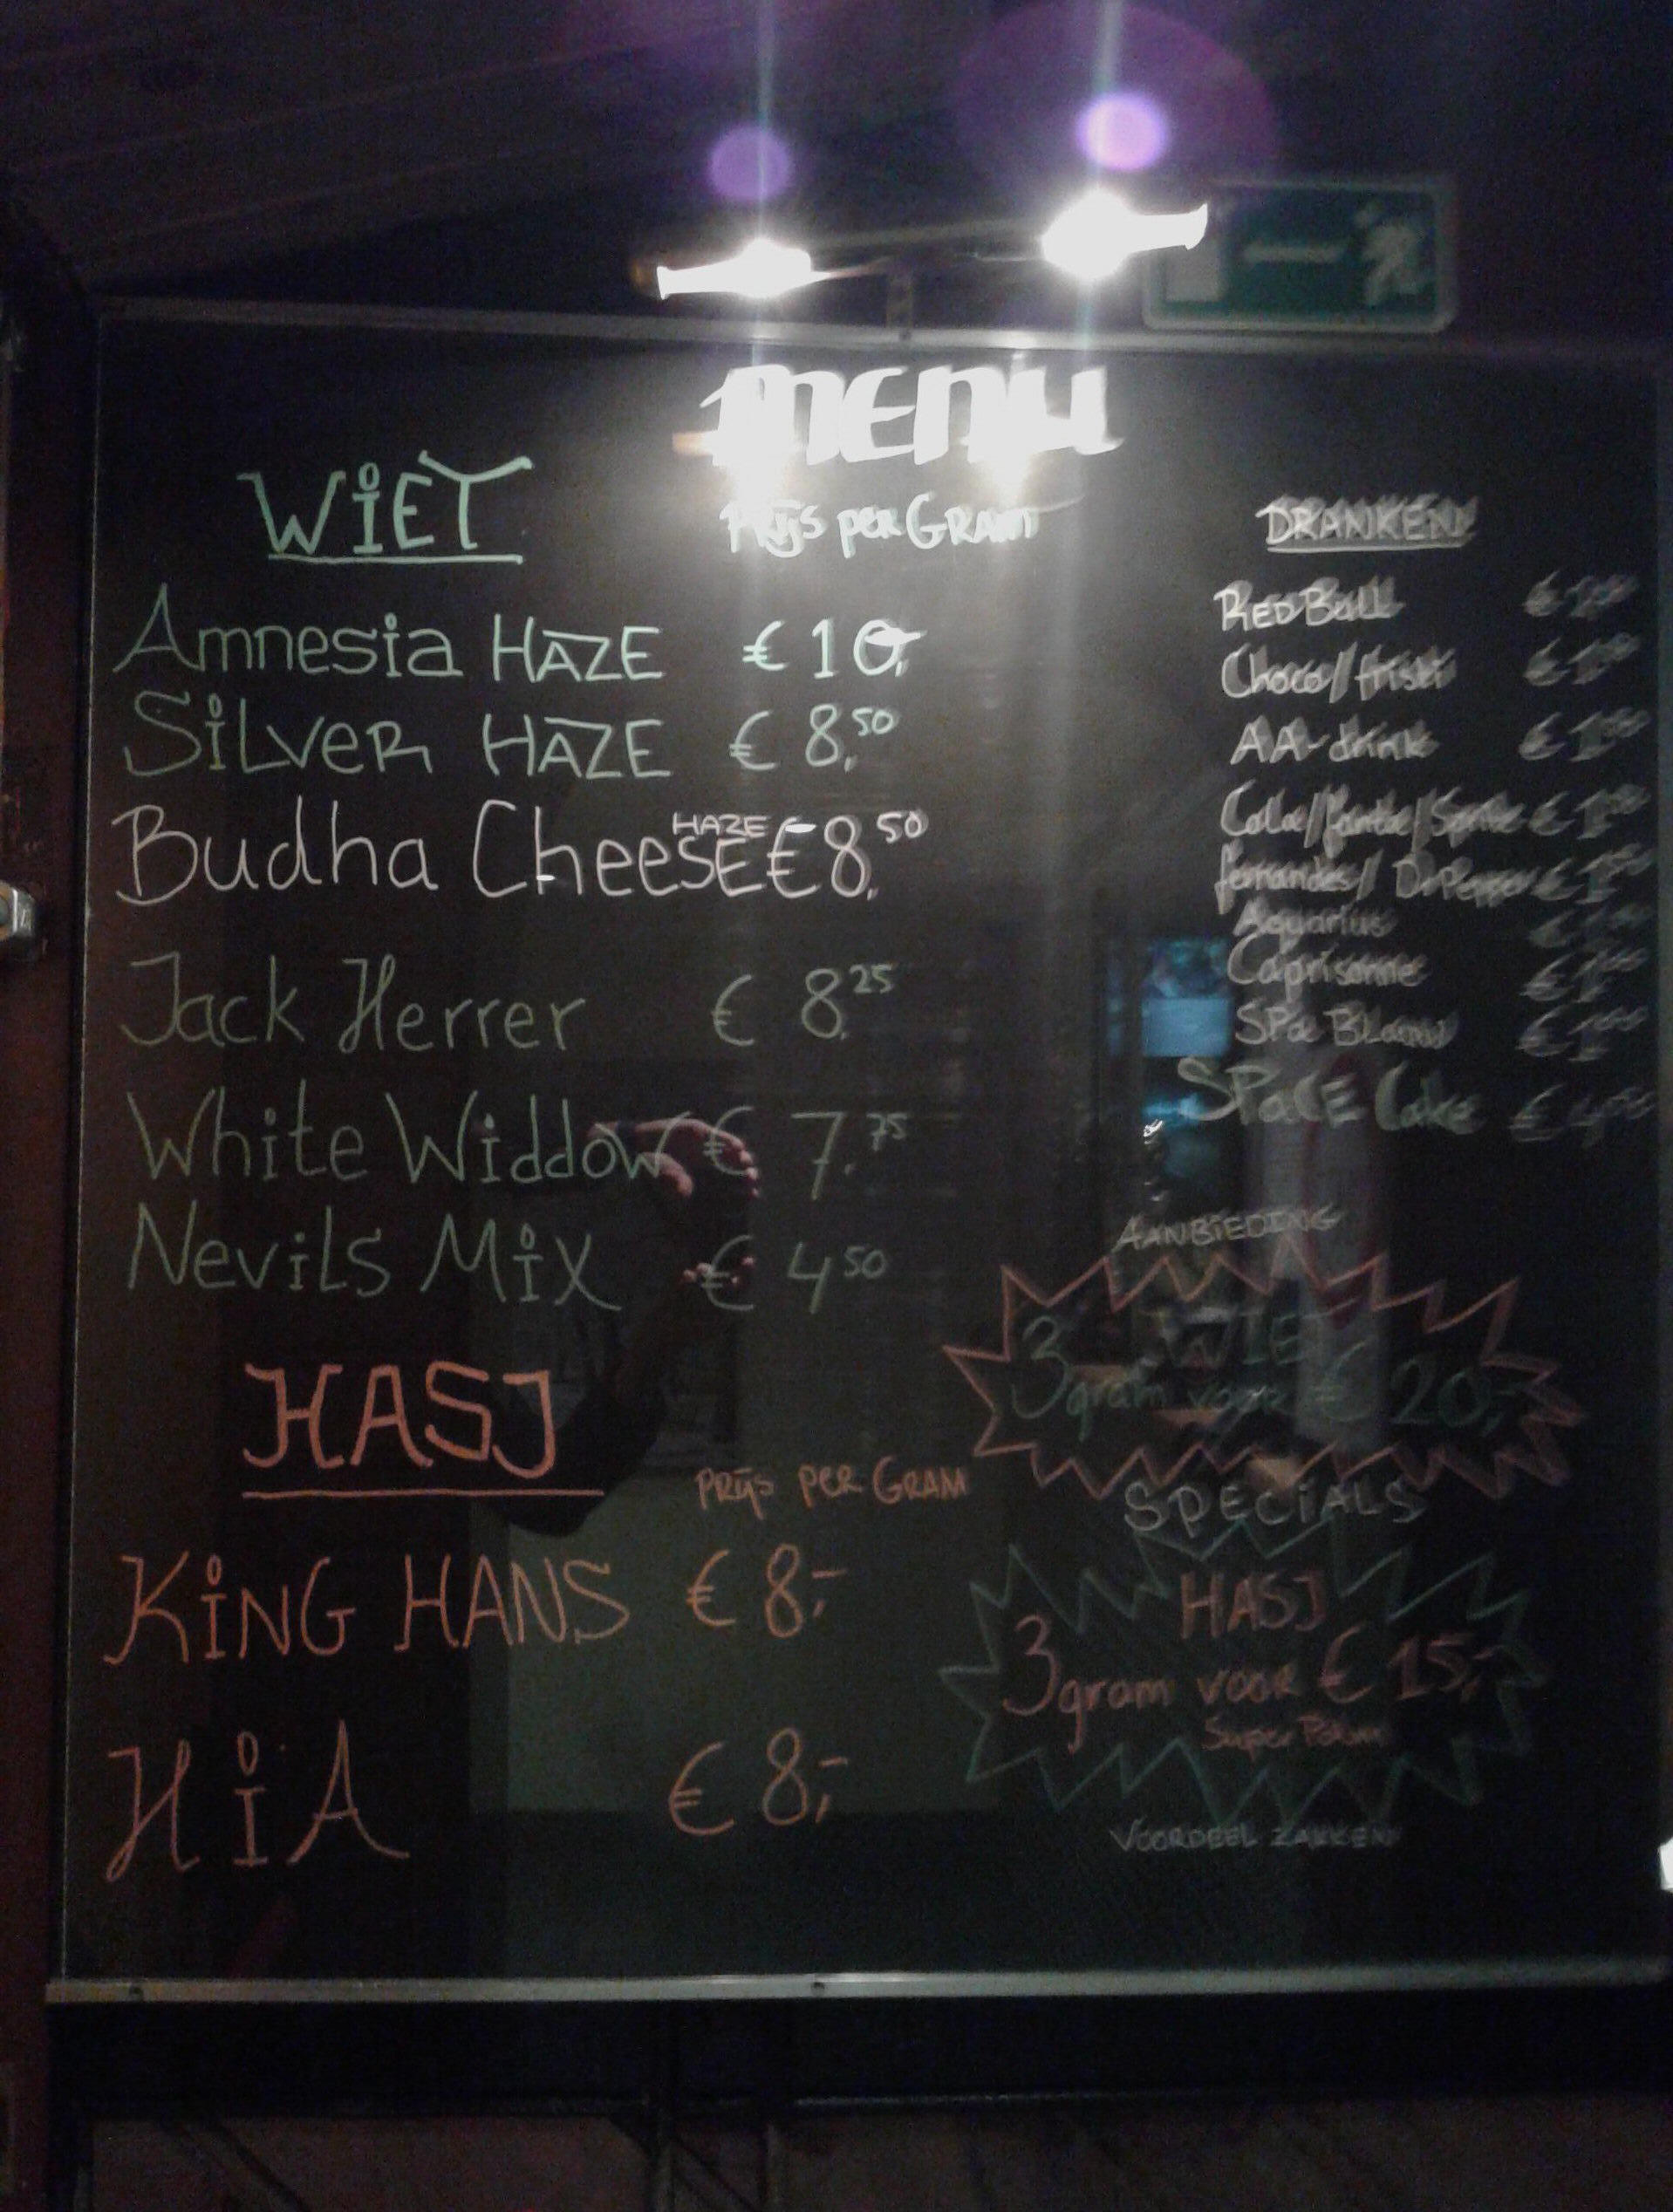 MENU
WIET
Prijs per GRAM
Amnesia HAZE € 10,-
SILVER HAZE € 8,50
Budha CheeSE HAZE € 8,50
Jack Herrer € 8,25
White Widdow € 7,75
Nevils Mix € 4 50
HASJ
Prijs per GRAM
KING HANS € 8,-
HiA € 8,-
DRANKEN
RedBull €
Choco/fristi €
AA-drink € 1
Cola/fanta/Sprite €
fernandes/ Dr.Pepper €
Aquarius €
Caprisonne €
SPa Blauw €
SPaCE Cake €
AANBIEDING
WIE
3 gram voor € 20,-
SPECIALS
HASJ
3 gram voor € 15,-
Super
VOORDEEL ZAKKEN